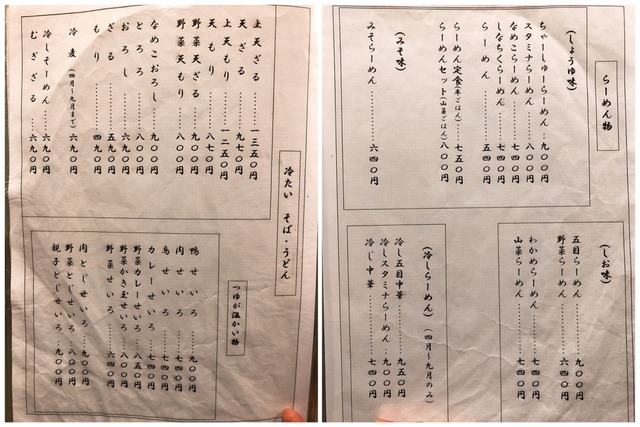 冷たい そば・うどん
上天ざる………一三五〇円
天ざる………九七〇円
上天もり………一二五〇円
天もり………八七〇円
野菜天ざる………九〇〇円
野菜天もり………八〇〇円
なめこおろし………九〇〇円
とろろ………八〇〇円
おろし………六九〇円
ざる………五九〇円
もり………四九〇円
冷麦(四月〜九月まで)六九〇円
冷しそーめん………六九〇円
むぎざる………六九〇円
つゆが温かい物
鴨せいろ………九〇〇円
肉せいろ………七四〇円
鳥せいろ………七四〇円
カレーせいろ………七四〇円
野菜カレーせいろ………八五〇円
野菜かき玉せいろ………八〇〇円
野菜せいろ………六四〇円
肉とじせいろ………九〇〇円
野菜とじせいろ………八〇〇円
親子とじせいろ………九〇〇円
らーめん物
(しょうゆ味)
ちゃーしゅーらーめん………九〇〇円
スタミナらーめん………八〇〇円
なめこらーめん………七四〇円
しなちくらーめん………七四〇円
らーめん………五四〇円
らーめん定食(半ごはん)…七五〇円
らーめんセット(山菜ごはん)八〇〇円
(みそ味)
みそらーめん………六四〇円
(しお味)
五目らーめん………九〇〇円
野菜らーめん………六四〇円
わかめらーめん………七四〇円
山菜らーめん………七四〇円
(冷しらーめん)(四月〜九月のみ)
冷し五目中華………九五〇円
冷しスタミナらーめん………九〇〇円
冷し中華………七四〇円